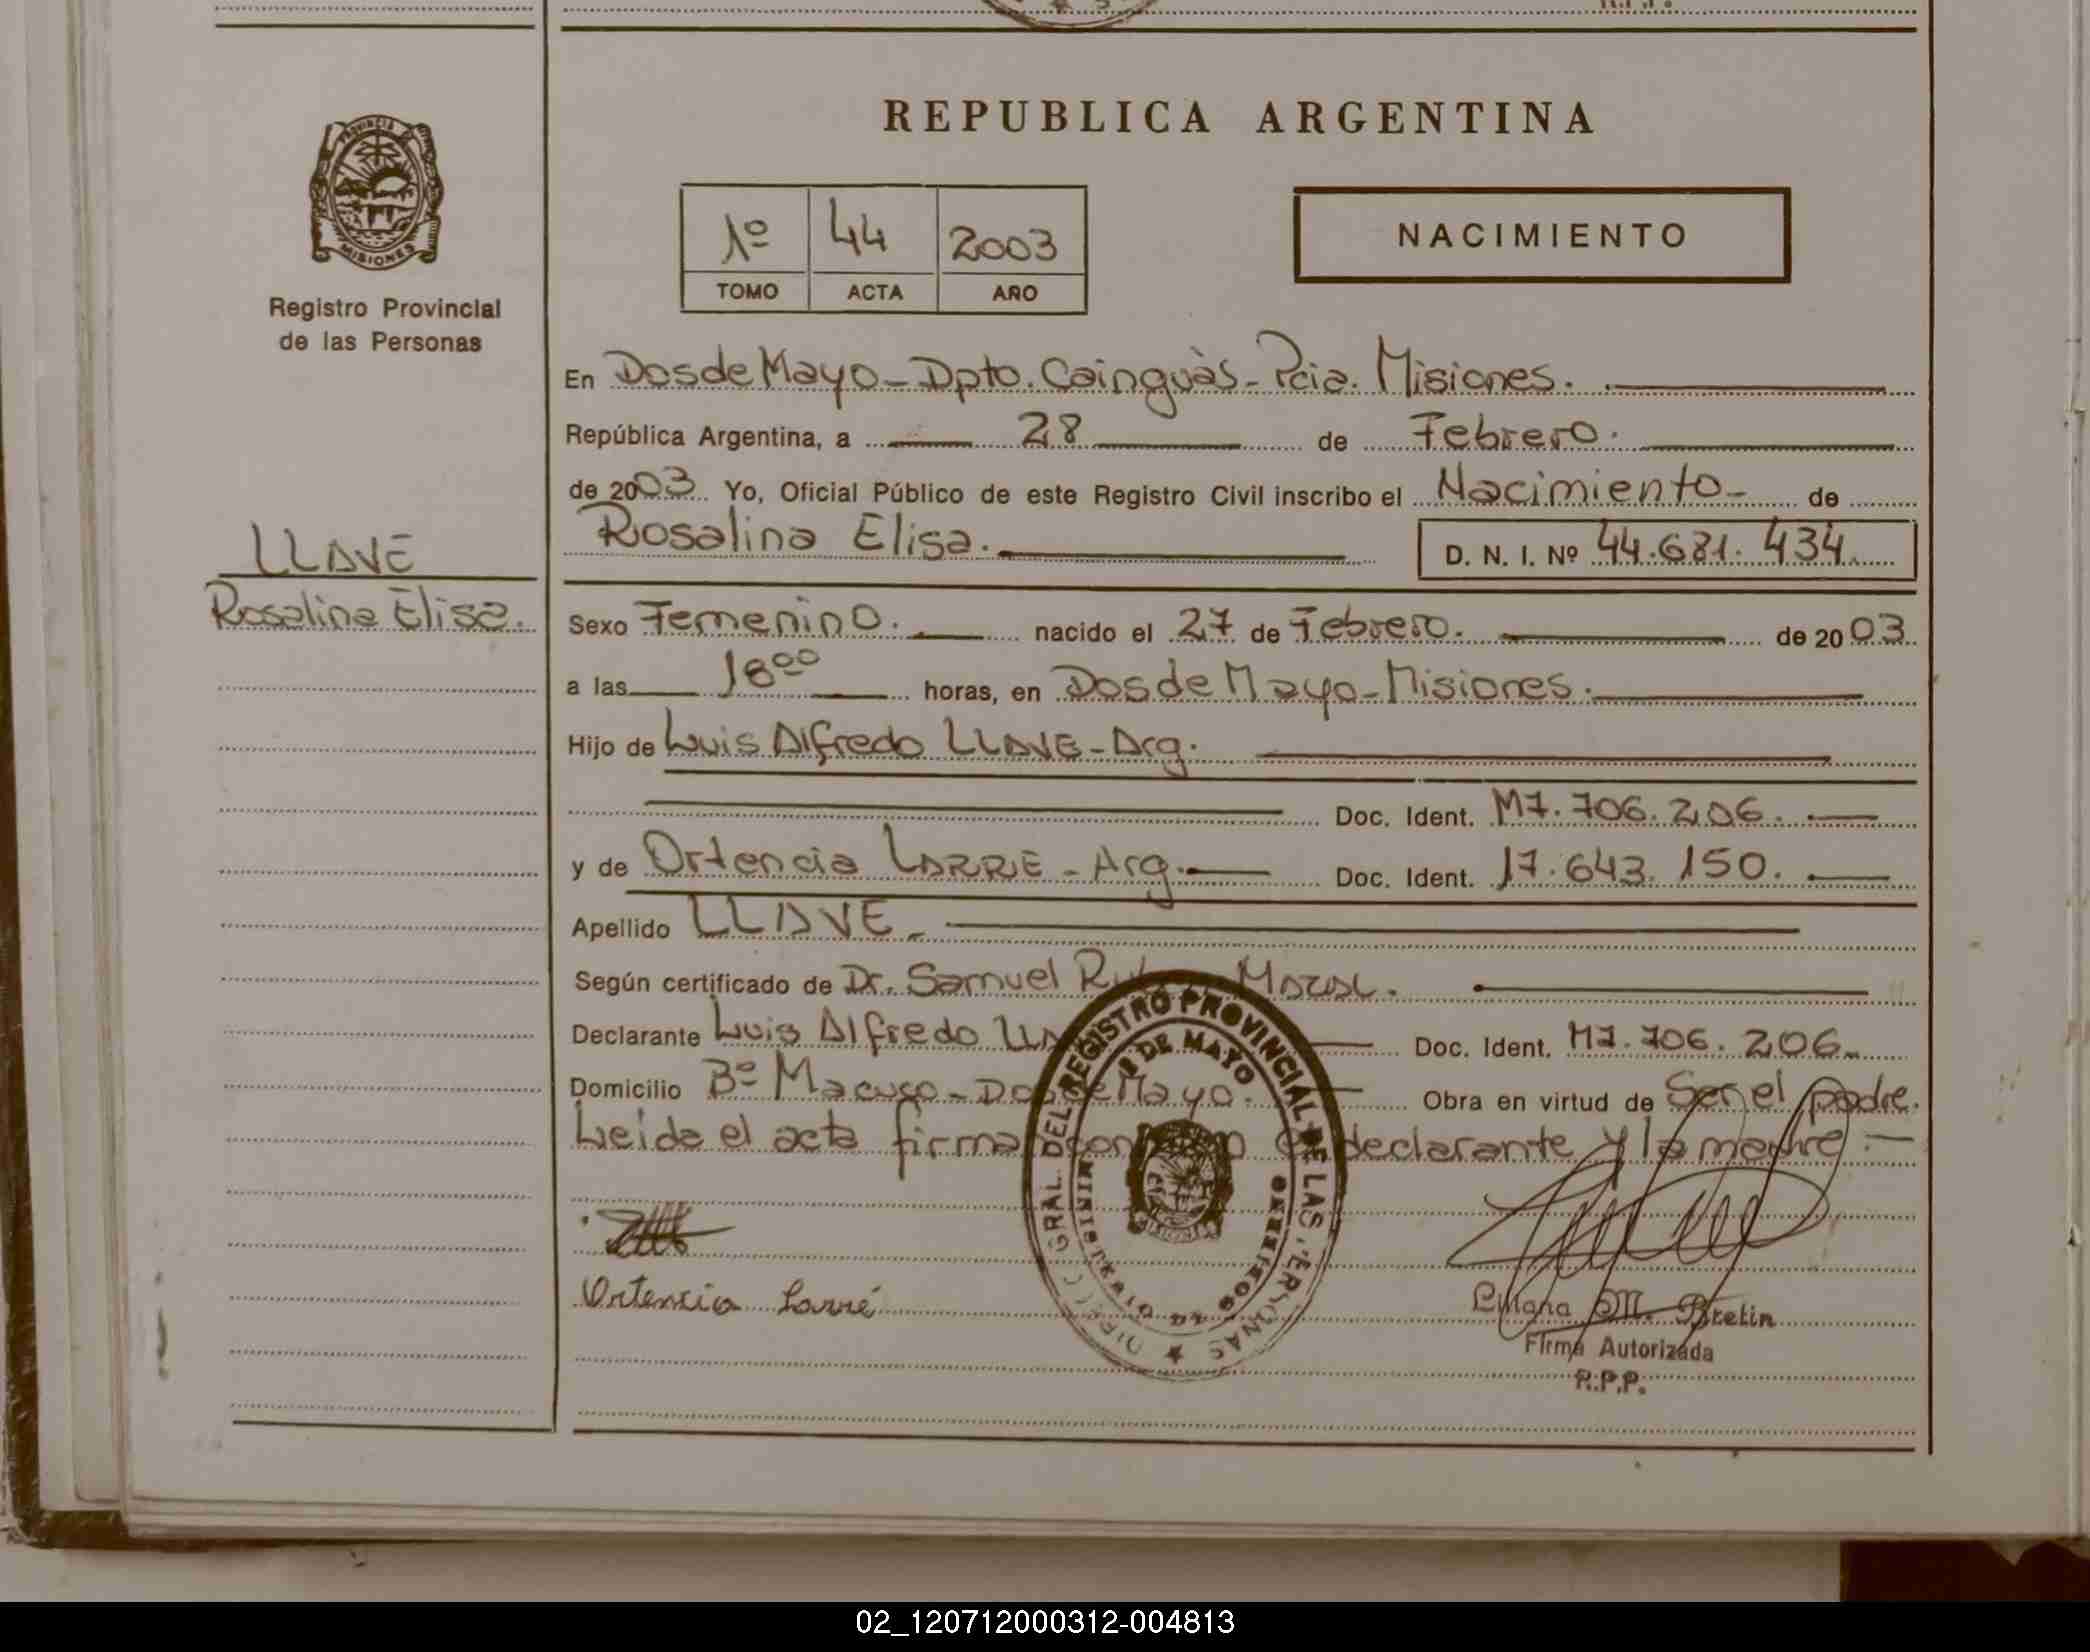 REPUBLICA ARGENTINA
PROVINCIA DE
MISIONES
Registro Provincial
de las Personas
1º 44 2003
TOMO ACTA AÑO
NACIMIENTO
En Dos de Mayo - Dpto. Cainguàs - Pcia. Misiones.
República Argentina, a 28 de Febrero.
de 2003 Yo, Oficial Público de este Registro Civil inscribo el Nacimiento - de
Rosalina Elisa. D. N. I. Nº 44.681.434.
LLAVE
Rosalina Elisa.
Sexo Femenino. nacido el 27 de Febrero. de 2003
a las 18⁰⁰ horas, en Dos de Mayo - Misiones.
Hijo de Luis Alfredo LLAVE - Arg.
Doc. Ident. M7.706.206.
y de Ortencia LARRE - Arg. Doc. Ident. 17.643.150.
Apellido LLAVE -
Según certificado de Dr. Samuel
Declarante Luis Alfredo Doc. Ident. M7.706.206.
Domicilio Bº Macuco - Dos de Mayo. Obra en virtud de Ser el padre.
Leida el acta firman conmigo el declarante y la madre. -
Ortencia Larré
DIRECC. GRAL. DEL REGISTRO PROVINCIAL DE LAS PERSONAS
2 DE MAYO
MISIONES
M. Bretin
Firma Autorizada
R.P.P.
02_120712000312-004813